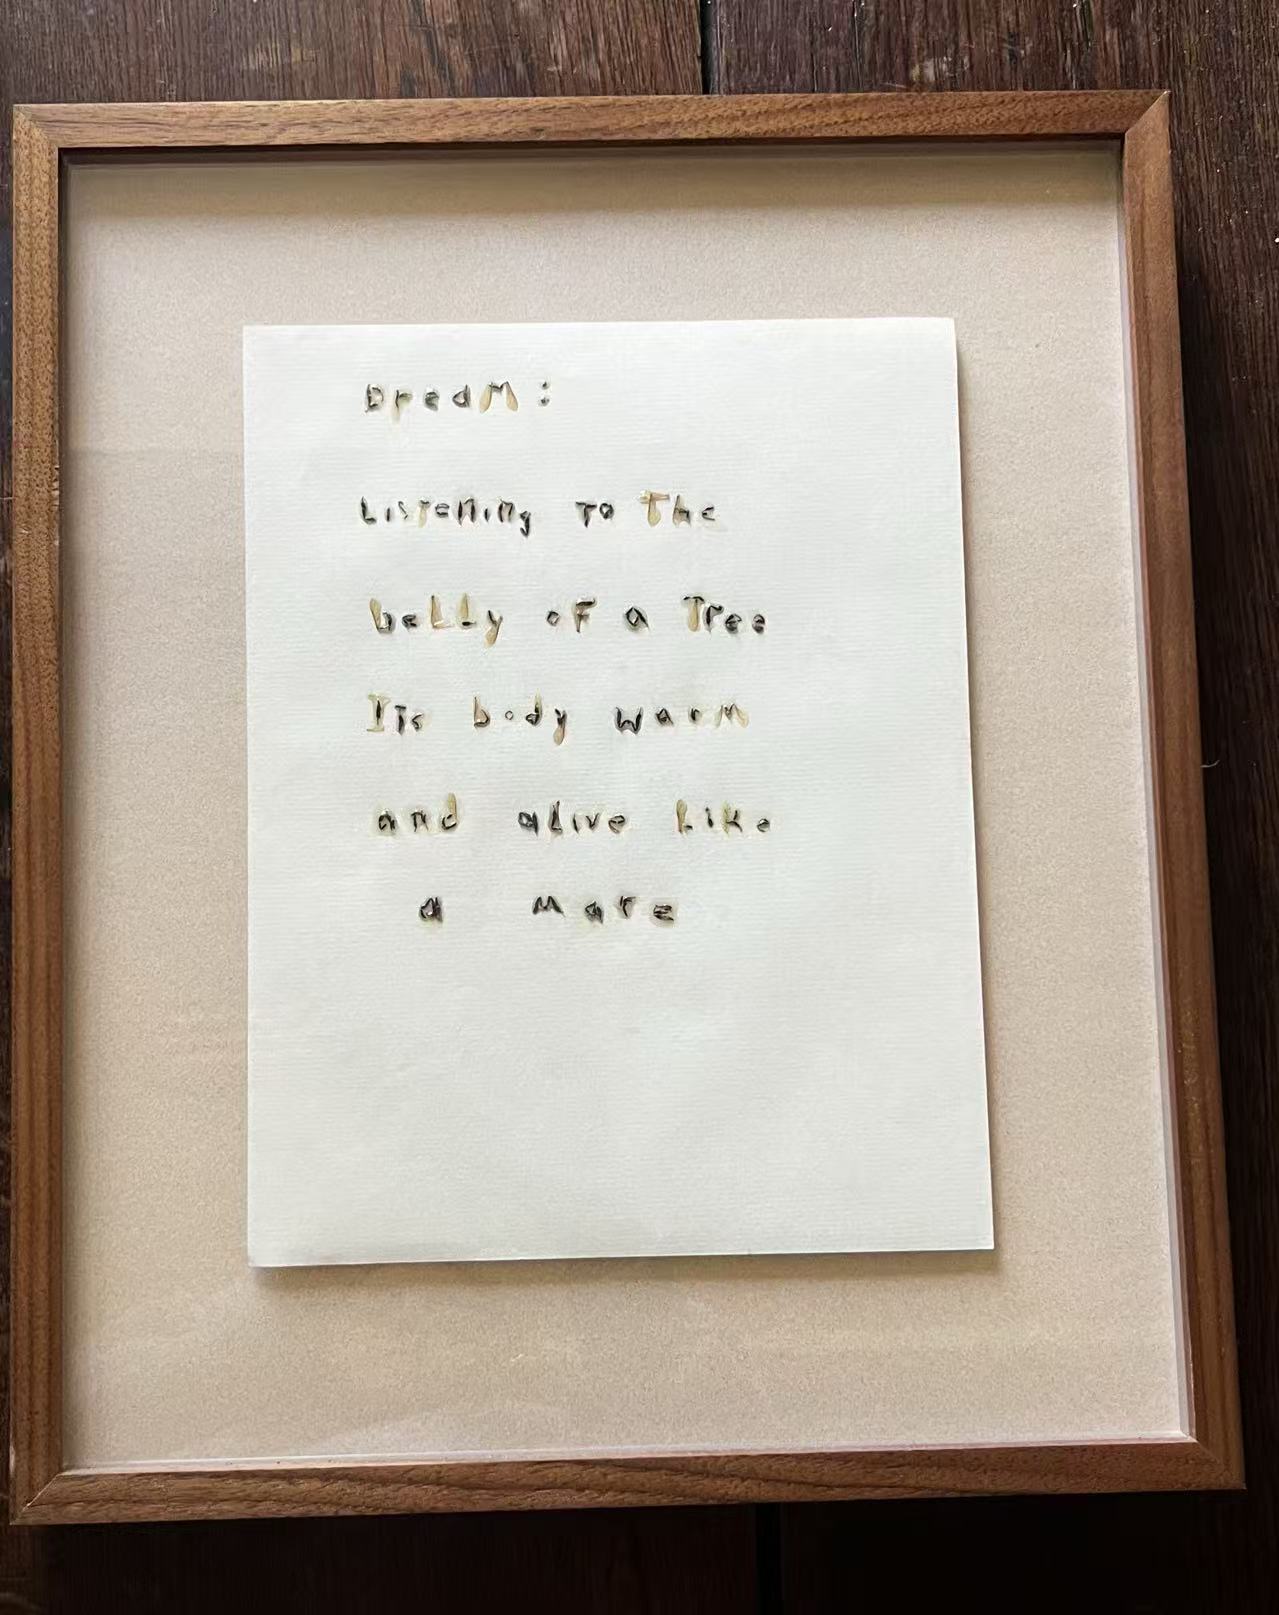 Dream:
Listening to The
belly of a Tree
Its body warm
and alive like
a mare